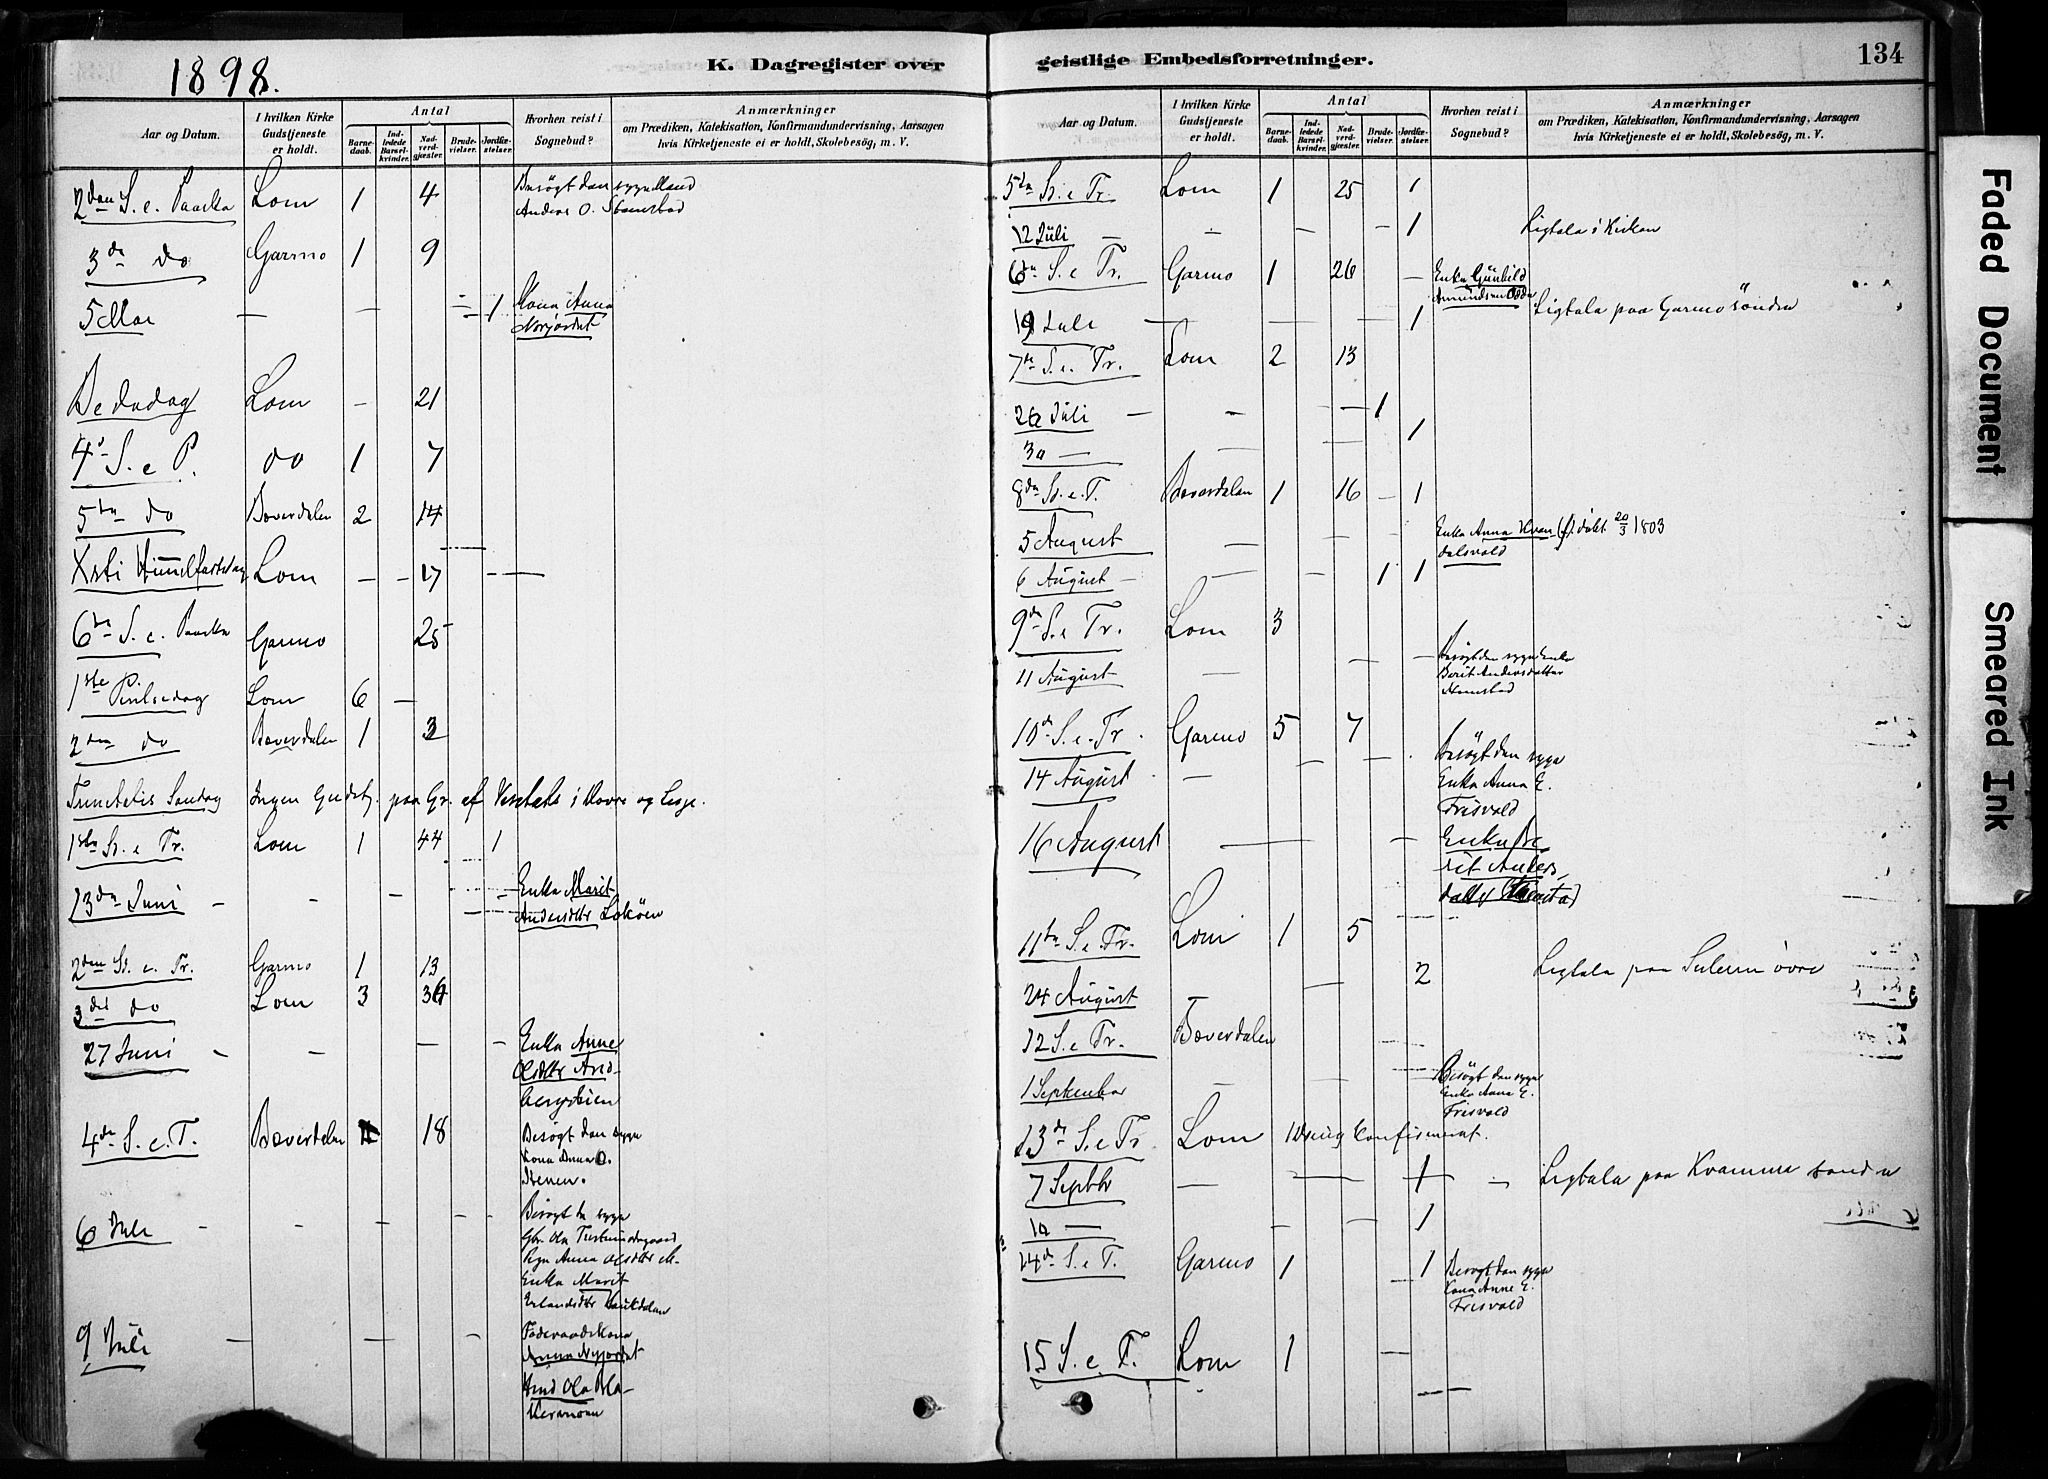 1898.
K. Dagregister over
Aar og Datum.
I hvilken Kirke Gudstjeneste er holdt.
Antal
Barnedaab.
Indledede Barselkvinder.
Nadverdgjæster.
Brudevielser.
Jordfæstelser.
Hvorhen reist i Sognebud?
Anmærkninger
om Prædiken, Katekisation, Konfirmandundervisning, Aarsagen
hvis Kirketjeneste ei er holdt, Skolebesög, m. V.
2den S. e. Paaske Lom 1 4 Besøgt den syge Mand
Andrias O.
3de do Garmo 1 9
5 Mai — — 1 Kona Anna
Bededag Lom — 21
4de S. e P. do 1 7
5te do Bæverdalen 2 14
Xsti Himmelfartsdag Lom — — 17 — —
6te S. e. Paaske Garmo 25
1ste Pintsedag Lom 6 —
2den do Bæverdalen 1 3
Trinitatis Søndag Ingen Gudstj. paa Gr. af Visitats i Dovre og Lesje.
1ste S. e Tr. Lom 1 44 1
13de Juni - - - Enke Marit
Andersdtr Lokøen
2den S. e. Tr. Garmo 1 13
3die do Lom 3 36
27 Juni - - — - Enke Anne
Olsdtr
4de S. e. T. Bæverdalen 1 18 Besøgt den syge
Kona Anna O.
6 Juli - - - - - Besøgt de syge
Gbr. Ola
Pige Anna Olsdtr
Enke Marit
Erlandsdtr
9 Juli — - — - Føderaadskona
Anna
Ola
geistlige Embedsforretninger.
134
Aar og Datum.
I hvilken Kirke Gudstjeneste er holdt.
Antal
Barnedaab.
Indledede Barselkvinder.
Nadverdgjæster.
Brudevielser.
Jordfæstelser.
Hvorhen reist i Sognebud?
Anmærkninger
om Prædiken, Katekisation, Konfirmandundervisning, Aarsagen
hvis Kirketjeneste ei er holdt, Skolebesög, m. V.
5te S. e Tr. Lom 1 25 1
12 Juli — - — - 1 Ligtale i Kirken
6te S. e Tr. Garmo 1 26 — Enke Gunhild
19 Juli — — — 1 Ligtale paa Garmo søndre
7de S. e. Tr. Lom 2 13
26 Juli — - - — 1
30 — — 1
8de S. e. T. Bæverdalen 1 16 - 1
5 August — Enke Anna Kvan- (f). døbt 20/3 1803
dalsvold
6 August — — - 1 1
9de S. e Tr. Lom 3
11 August — - - Besøgt den syge Enke
Berit Andersdatter
10de S. e. Tr. Garmo 5 7
14 August — - - Besøgt den syge
Enke Anna E.
Frisvold
16 August — - Enke Be-
rit Anders-
datter
11te S. e. Tr. Lom 1 5
24 August — — 2 Ligtale paa Sulem øvre
12 S. e Tr. Bæverdalen
1 September — - - Besøgt den syge
Enke Anna E.
Frisvold
13de S. e Tr. Lom 1 Dreng confirmeret.
7 Septbr — — - 1 - Ligtale paa Kvamme søndre
10 — - — 1
14de S. e T. Garmo 1 1 Besøgt den syge
Kona Anne E.
Frisvold
15 S. e T. Lom 1
Faded Document
Smeared Ink